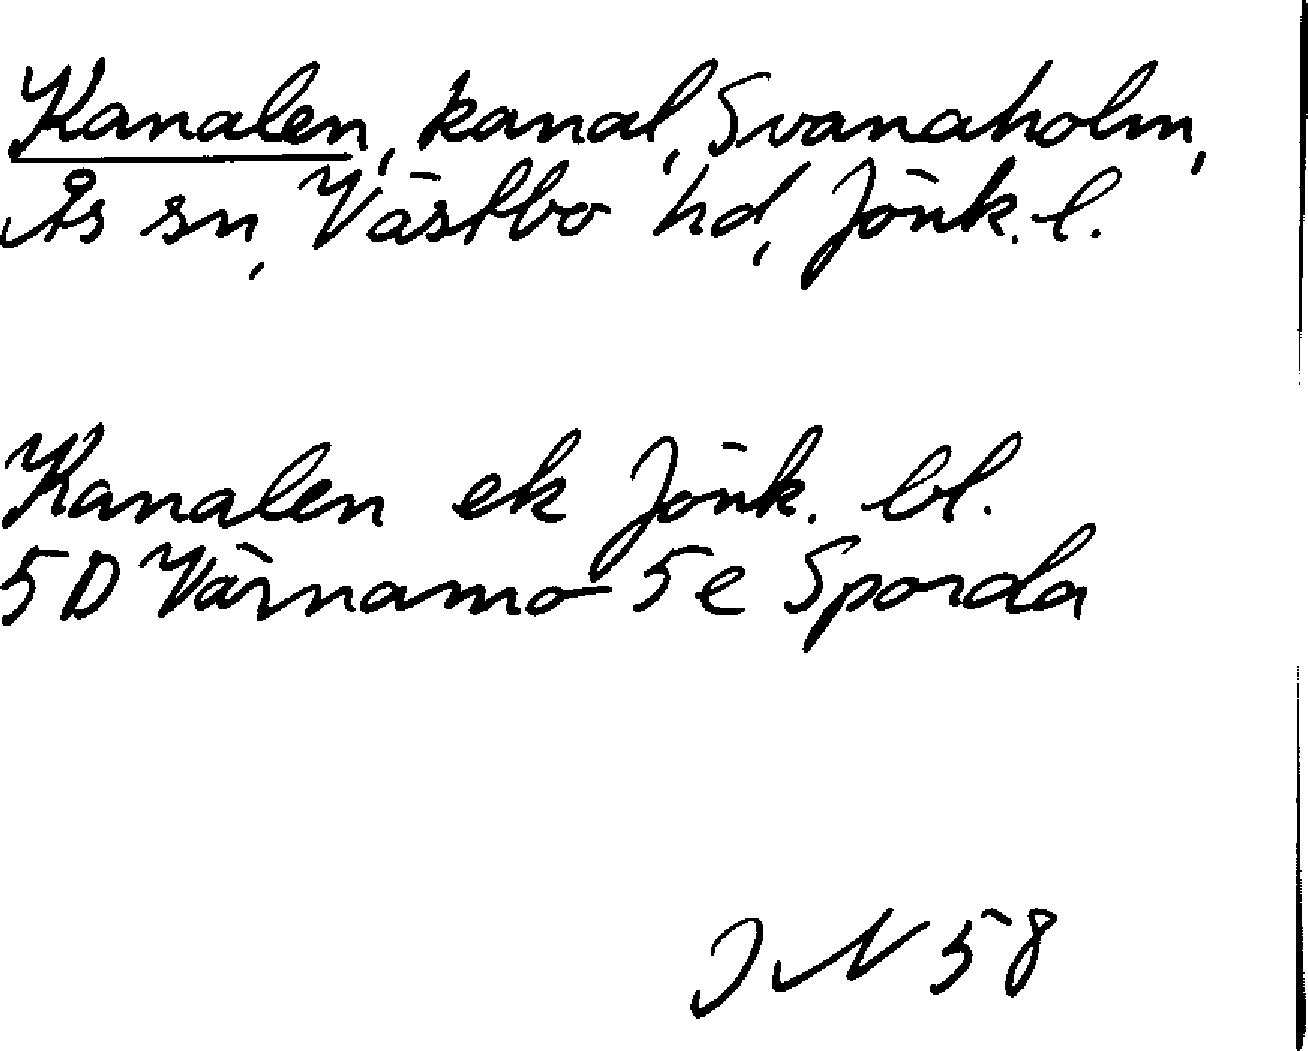 Kanalen, kanal, Svanaholm,
Ås sn, Västbo hd, Jönk. l.
Kanalen ek Jönk. bl.
5D Värnamo 5e Sporda
JN 58